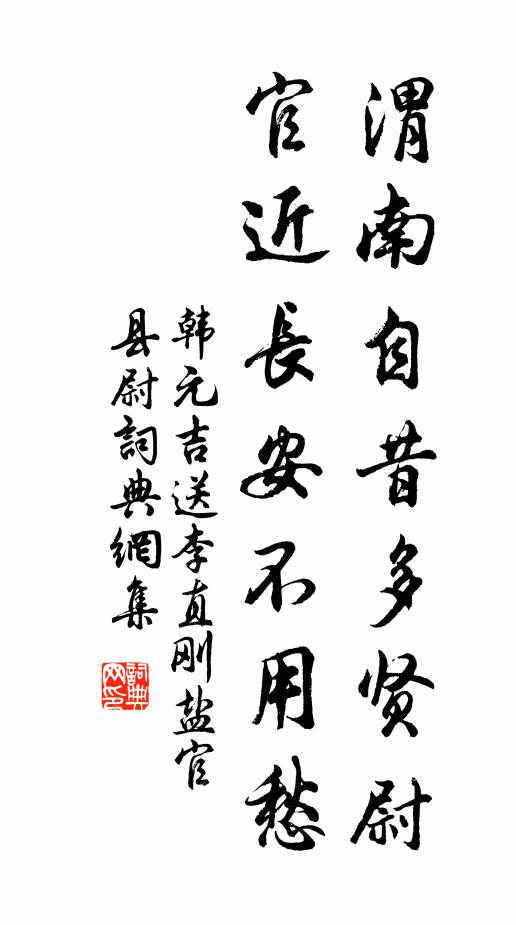 渭南自昔多贤尉
官近長安不用愁
韩元吉送李直刚盐官
县尉詞典網集
詞典网印